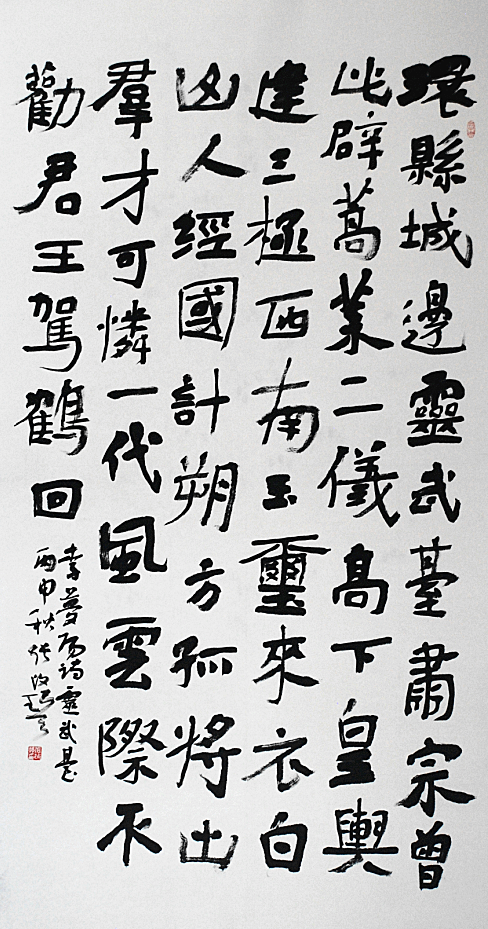 環縣城邊靈武臺肅宗曾
此辟蒿萊二儀高下皇輿
建三極西南玉璽來衣白
山人經國計朔方孤將出
羣才可憐一代風雲際不
勸君王駕鶴回
李夢陽謁靈武臺
丙申秋張改琴